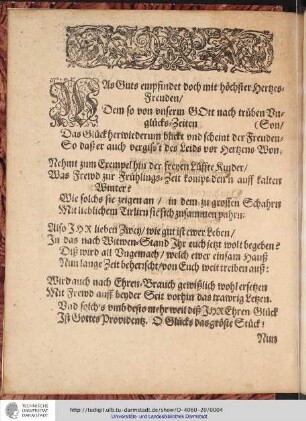 WAs Guts empfindet doch mit höchster Hertzes-
Freuden/
Dem so von vnserm GOtt nach trüben Vn-
glücks-Zeiten (Son/
Das Glück herwiederum blickt und scheint der Freuden-
So daß er auch vergiß't des Leids vor Hertzens Won.
Nehmt zum Exempel hin der freyen Lüffte Kinder/
Was Frewd zur Frühlings-Zeit kompt den'n auff kalten
Winter?
Wie solchs sie zeigen an / in dem zu grossen Schahrn
Mit lieblichem Tirlirn sie sich zusammen pahrn:
Also JHR lieben Zwey/ wie gut ist ewer Leben/
In das nach Witwen-Stand Ihr euch jetzt wolt begeben?
Diß wird all Vngemach/ welch ewer einsam Hauß
Nun lange Zeit beherrscht/ von Euch weit treiben auß:
Wird auch nach Ehren-Brauch gewißlich wohl ersetzen
Mit Frewd auff beyder Seit vorhin das trawrig Letzen.
Vnd solch's vmb desto mehr weil diß JHR Ehren-Glück
Ist Gottes Providentz. O Glücks das größte Stück!
Nun
TECHNISCHE
UNIVERSITÄT
DARMSTADT
http://tudigit.ulb.tu-darmstadt.de/show/O-4060-20/0004
Universitäts- und Landesbibliothek Darmstadt